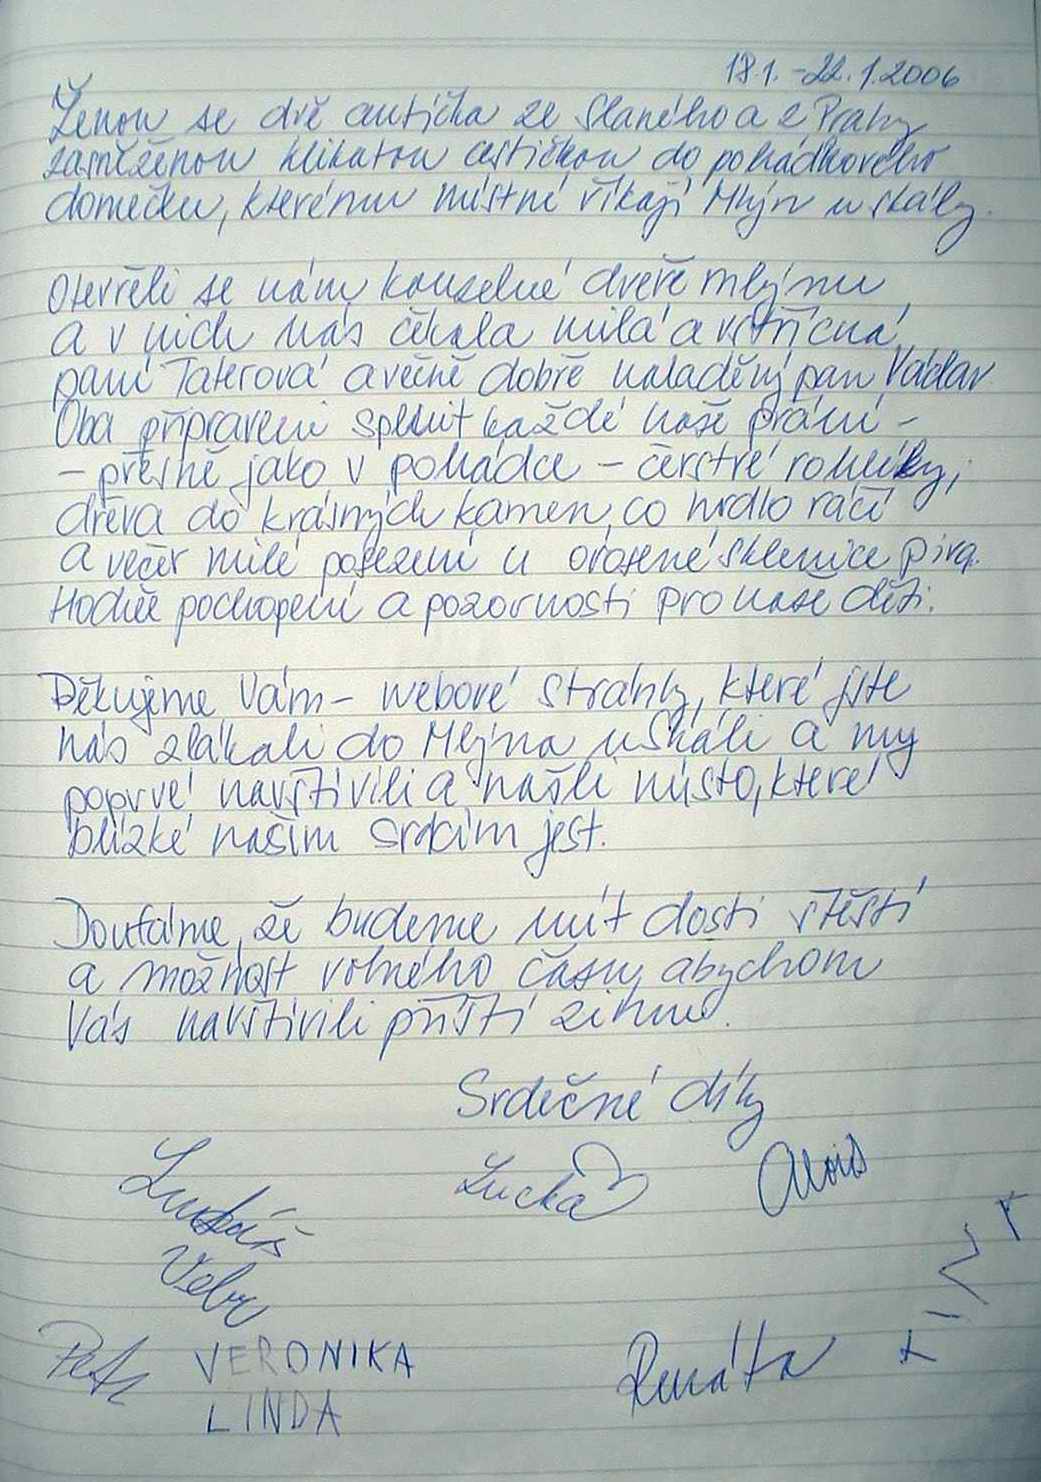 18.1. - 22.1.2006
Ženou se dvě autíčka ze Slaného a z Prahy
zasněženou klikatou cestičkou do pohádkového
domečku, kterému místní říkají Mlýn u skály.
Otevřeli se nám kouzelné dveře mlýnu
a v nich nás čekala milá a vstřícná
paní Taterová a věčně dobře naladěný pan Václav
Oba připraveni splnit každé naše přání -
- přesně jako v pohádce - čerstvé rohlíky,
dřeva do krásných kamen, co hrdlo ráčí
a večer milé posezení u orosené sklenice piva.
Hodně pochopení a pozornosti pro naše děti.
Děkujeme Vám - webové stránky, které jste
nás zlákali do Mlýna u skáli a my
poprvé navštívili a našli místo, které
blízké našim srdcím jest.
Doufáme, že budeme mít dosti štěstí
a možnost volného času, abychom
Vás navštívili příští zimu.
Srdečné díky
Lukáš Lucka Alois
Vebr
Petr VERONIKA Renáta
LINDA